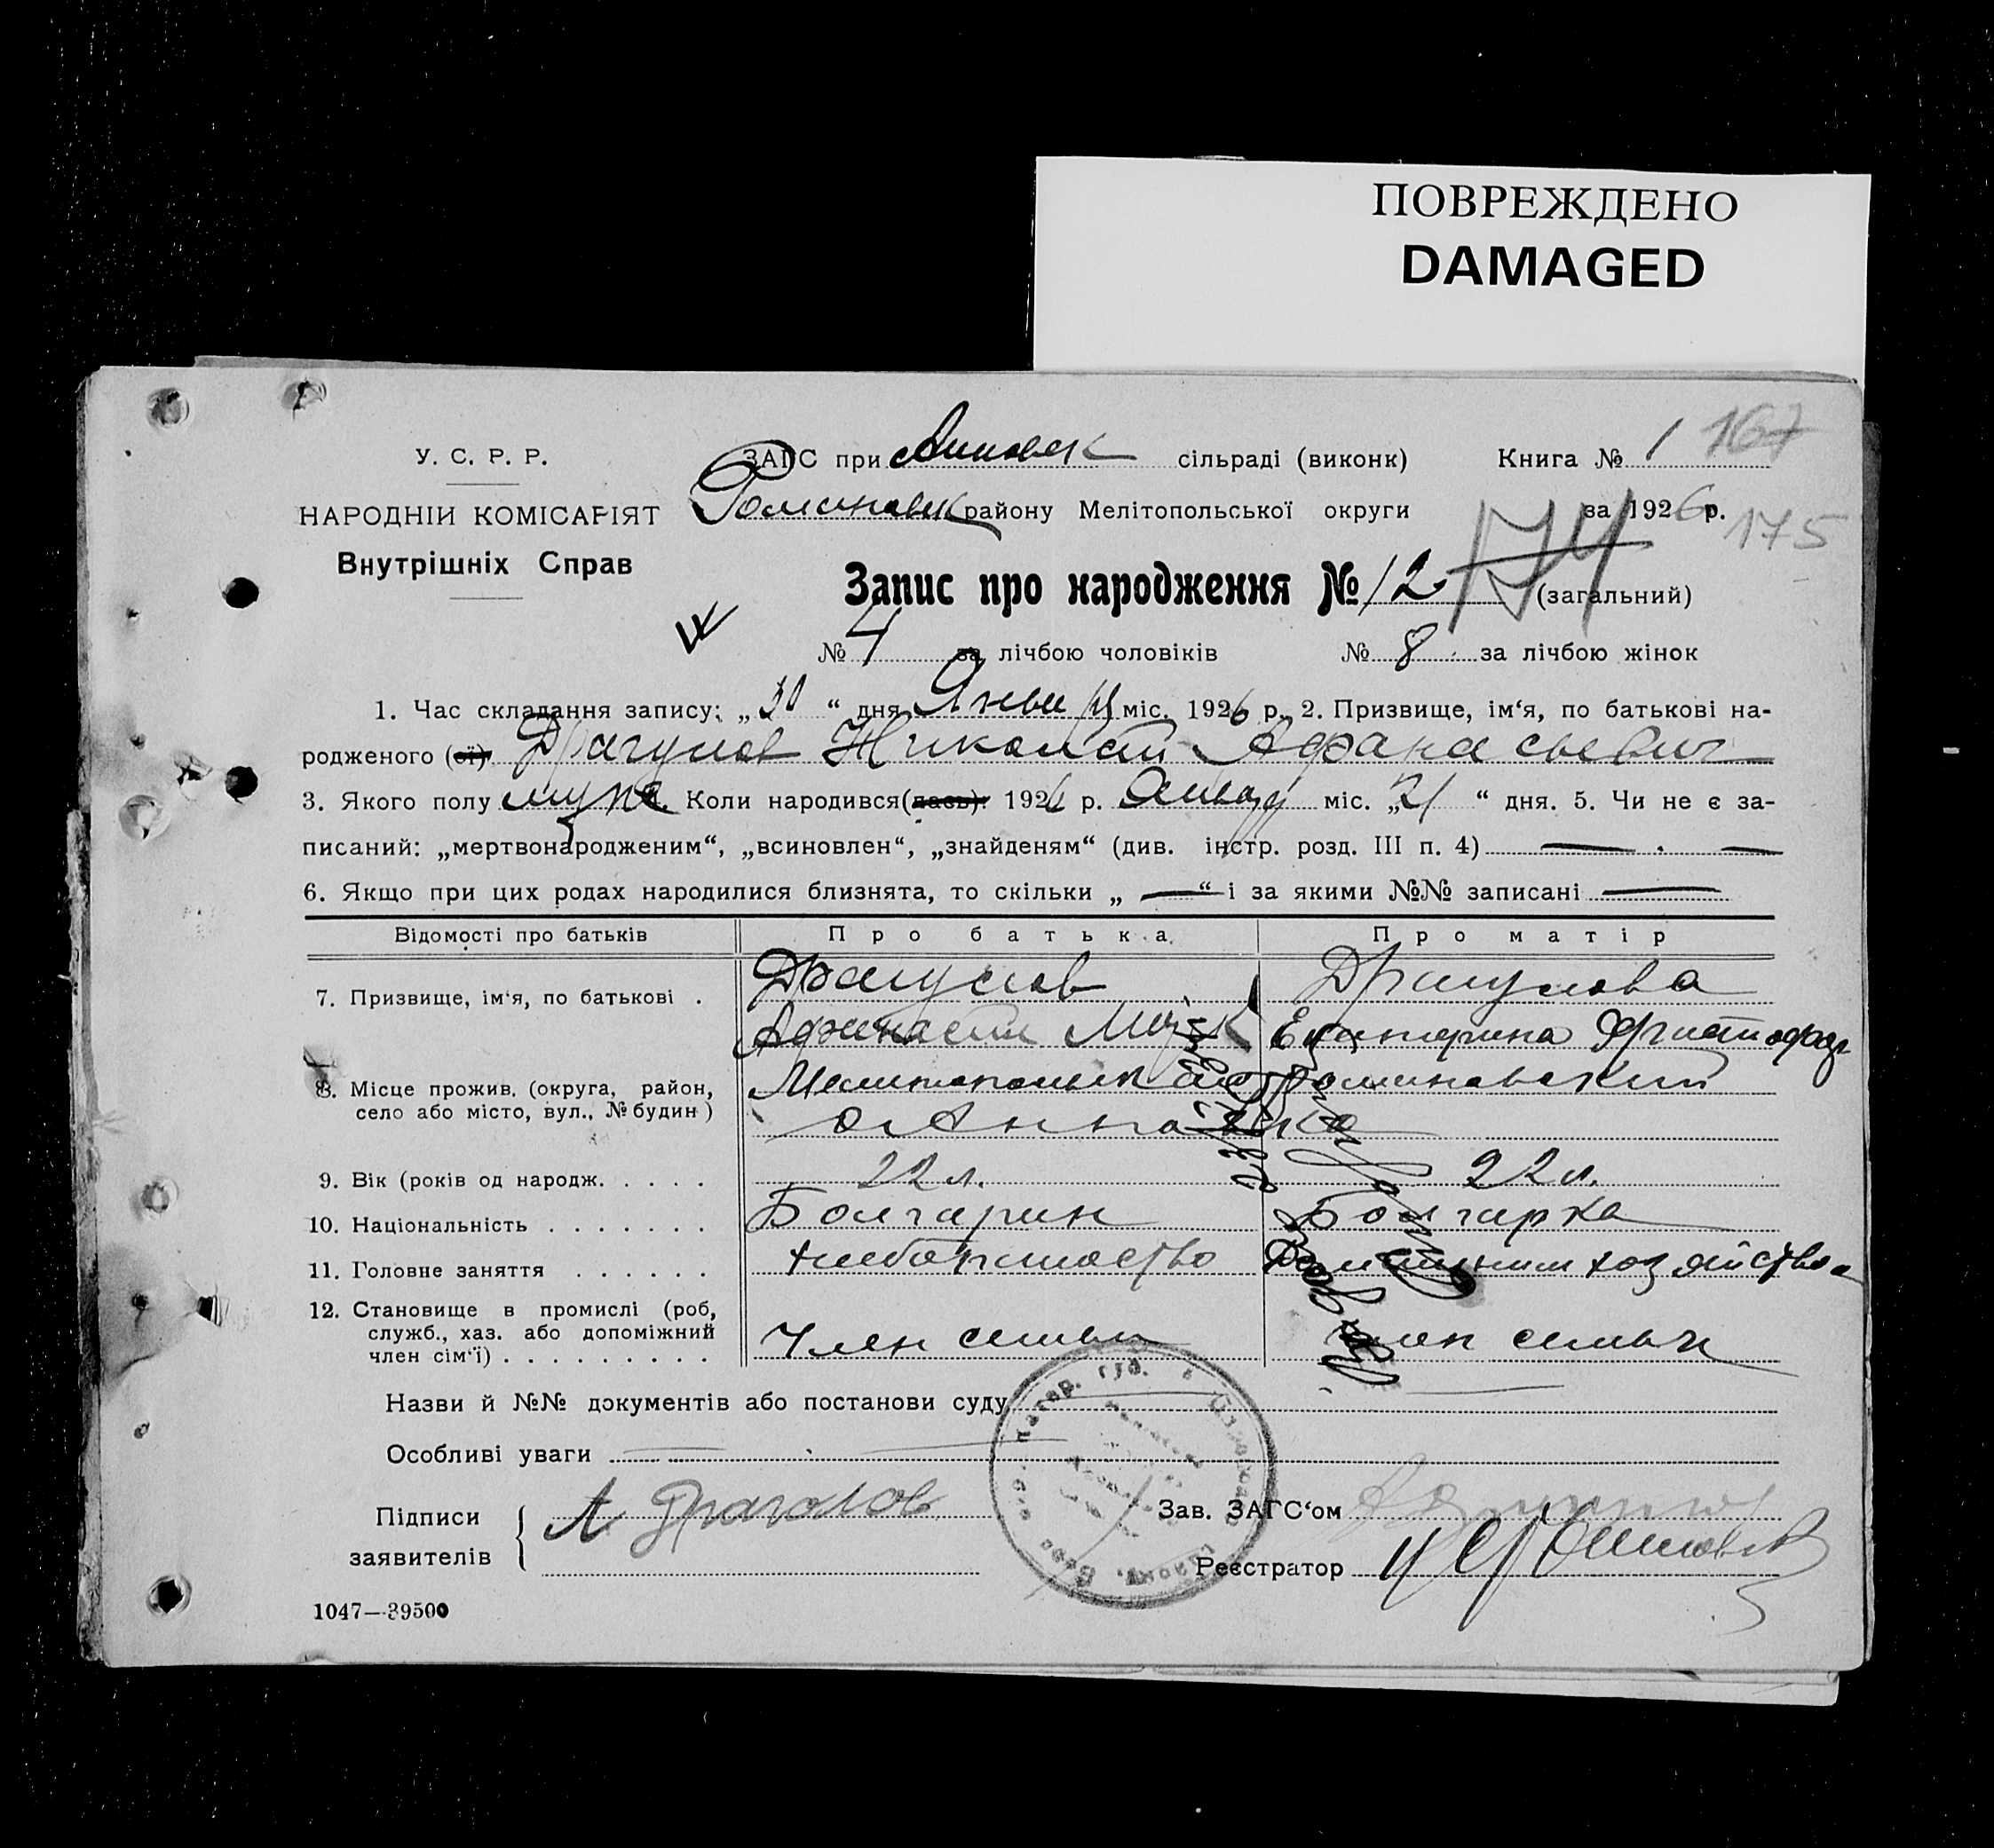 ПОВРЕЖДЕНО
DAMAGED
У. С. Р. Р.
НАРОДНІЙ КОМІСАРІЯТ
Внутрішніх Справ
ЗАГС при Анновск сільраді (виконк) Книга № 1 167
району Мелітопольської округи за 1926 р. 175
Запис про народження № 12 174 (загальний)
№ 4 за лічбою чоловіків № 8 за лічбою жінок
1. Час складання запису: „30 “ дня Января міс. 1926 р. 2. Призвище, ім‘я, по батькові на-
родженого (ої) Драгулов Николай Афанасьевич
3. Якого полу муж. Коли народився(лась): 1926 р. Января міс. „21 “ дня. 5. Чи не є за-
писаний: „мертвонародженим“, „всиновлен“, „знайденям“ (див. інстр. розд. III п. 4) — . —
6. Якщо при цих родах народилися близнята, то скільки „ — “ і за якими №№ записані —
Відомості про батьків Про батька Про матір
7. Призвище, ім‘я, по батькові . Драгулов Драгулова
Афанасий Екатерина
8. Місце прожив. (округа, район, село або місто, вул., № будин) Мелитопольский
с Анновка
9. Вік (років од народж. . . . . 22 л. 22 л.
10. Національність . . . . . . . Болгарин Болгарка
11. Головне заняття . . . . . . хлебопашество хозяйство
12. Становище в промислі (роб,
служб., хаз. або допоміжний
член сім‘ї) . . . . . . . . . Член семьи член семьи
Назви й №№ документів або постанови суду
Особливі уваги
Підписи
заявителів А Драголов
Зав. ЗАГС‘ом
Реєстратор
1047—39500